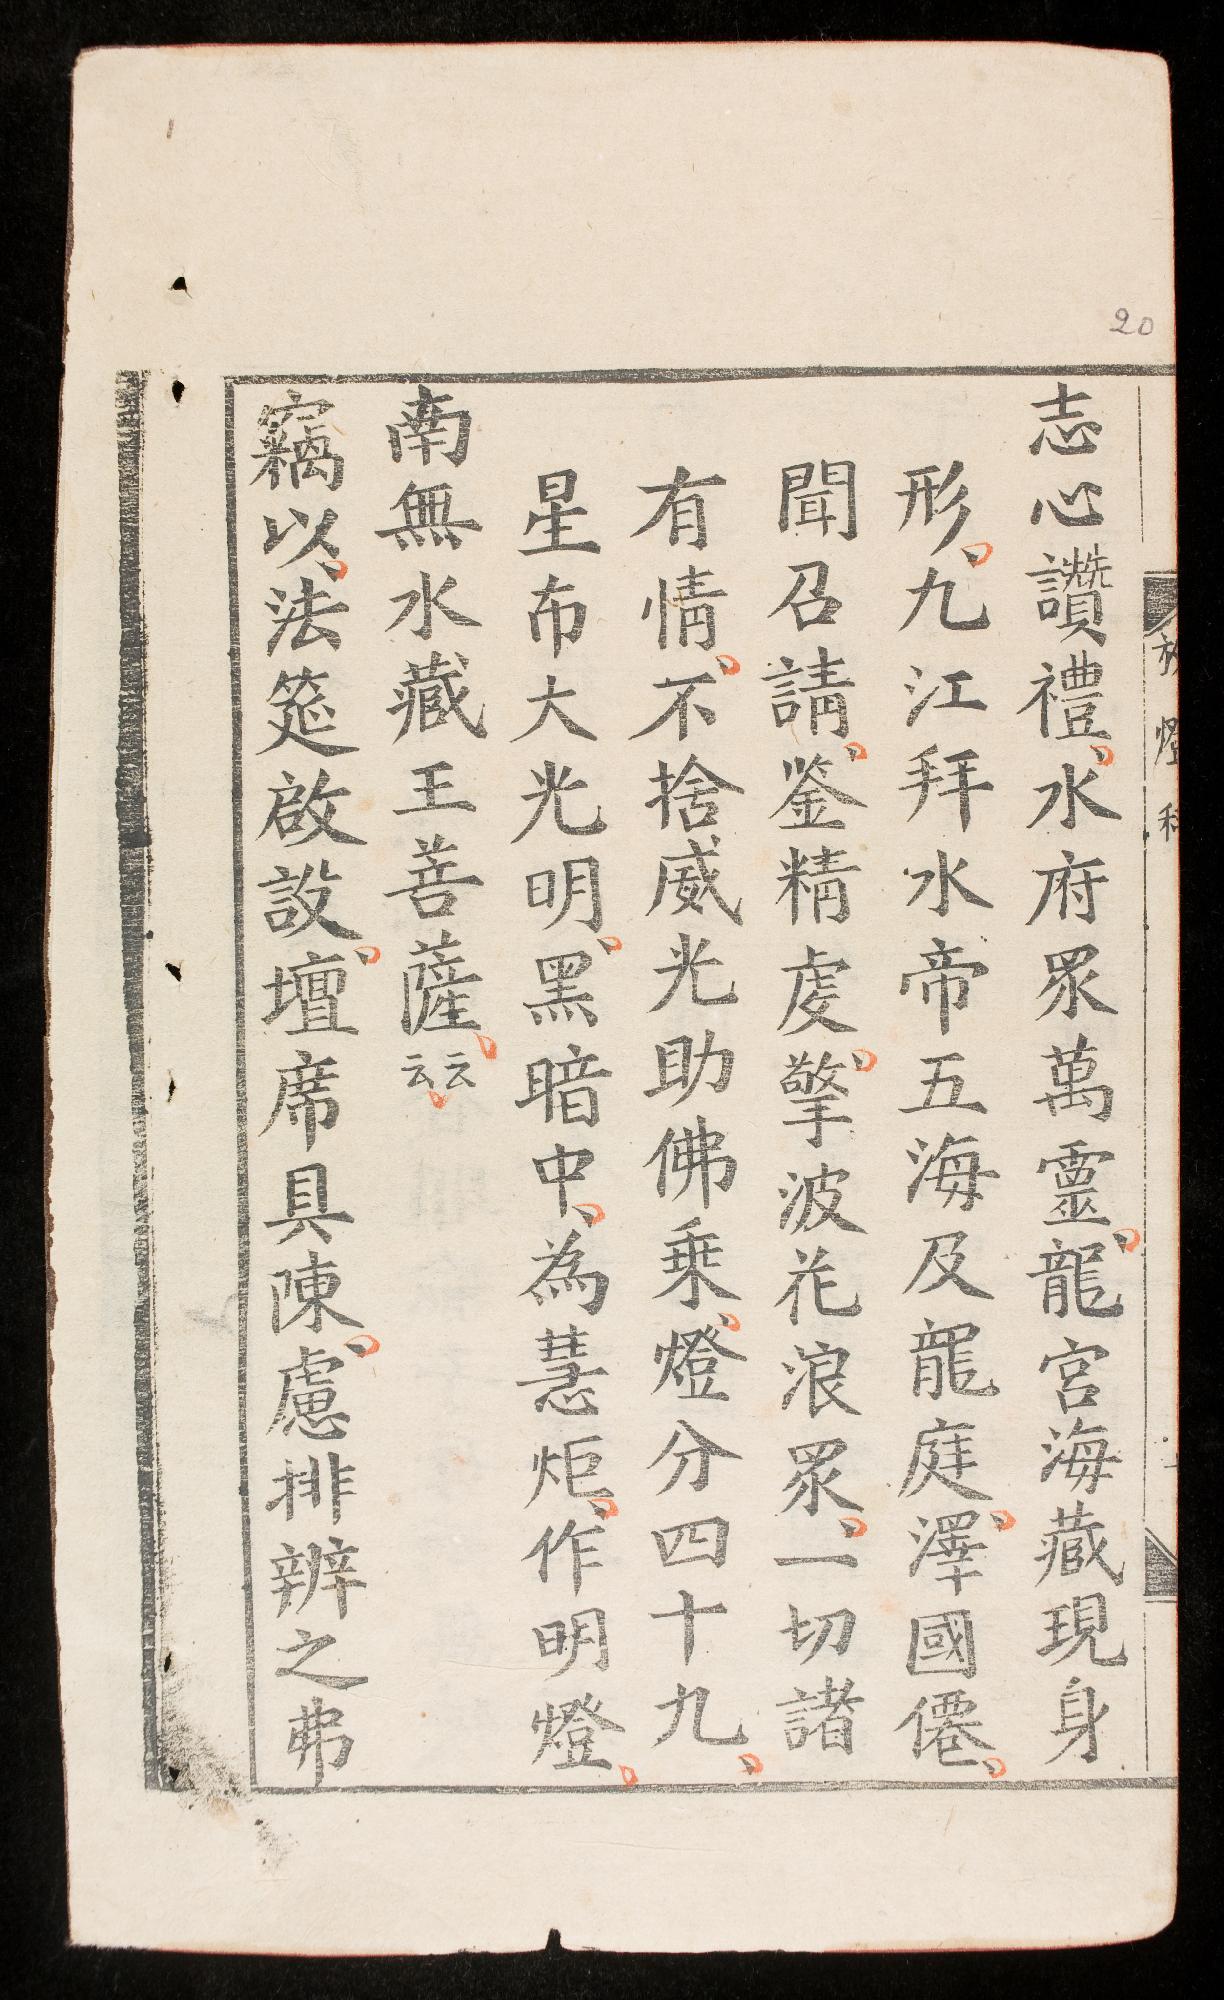 20
放燈科
志心讚禮、水府眾萬靈、龍宮海藏現身
形、九江拜水帝五海及龍庭、澤國僊、
聞召請、鉴精虔、擎波花浪眾、一切諸
有情、不捨威光助佛乗、燈分四十九、
星布大光明、黑暗中、為慧炬、作明燈、
南無水藏王菩薩、云云
竊以、法筵啟設、壇席具陳、慮排辦之弗